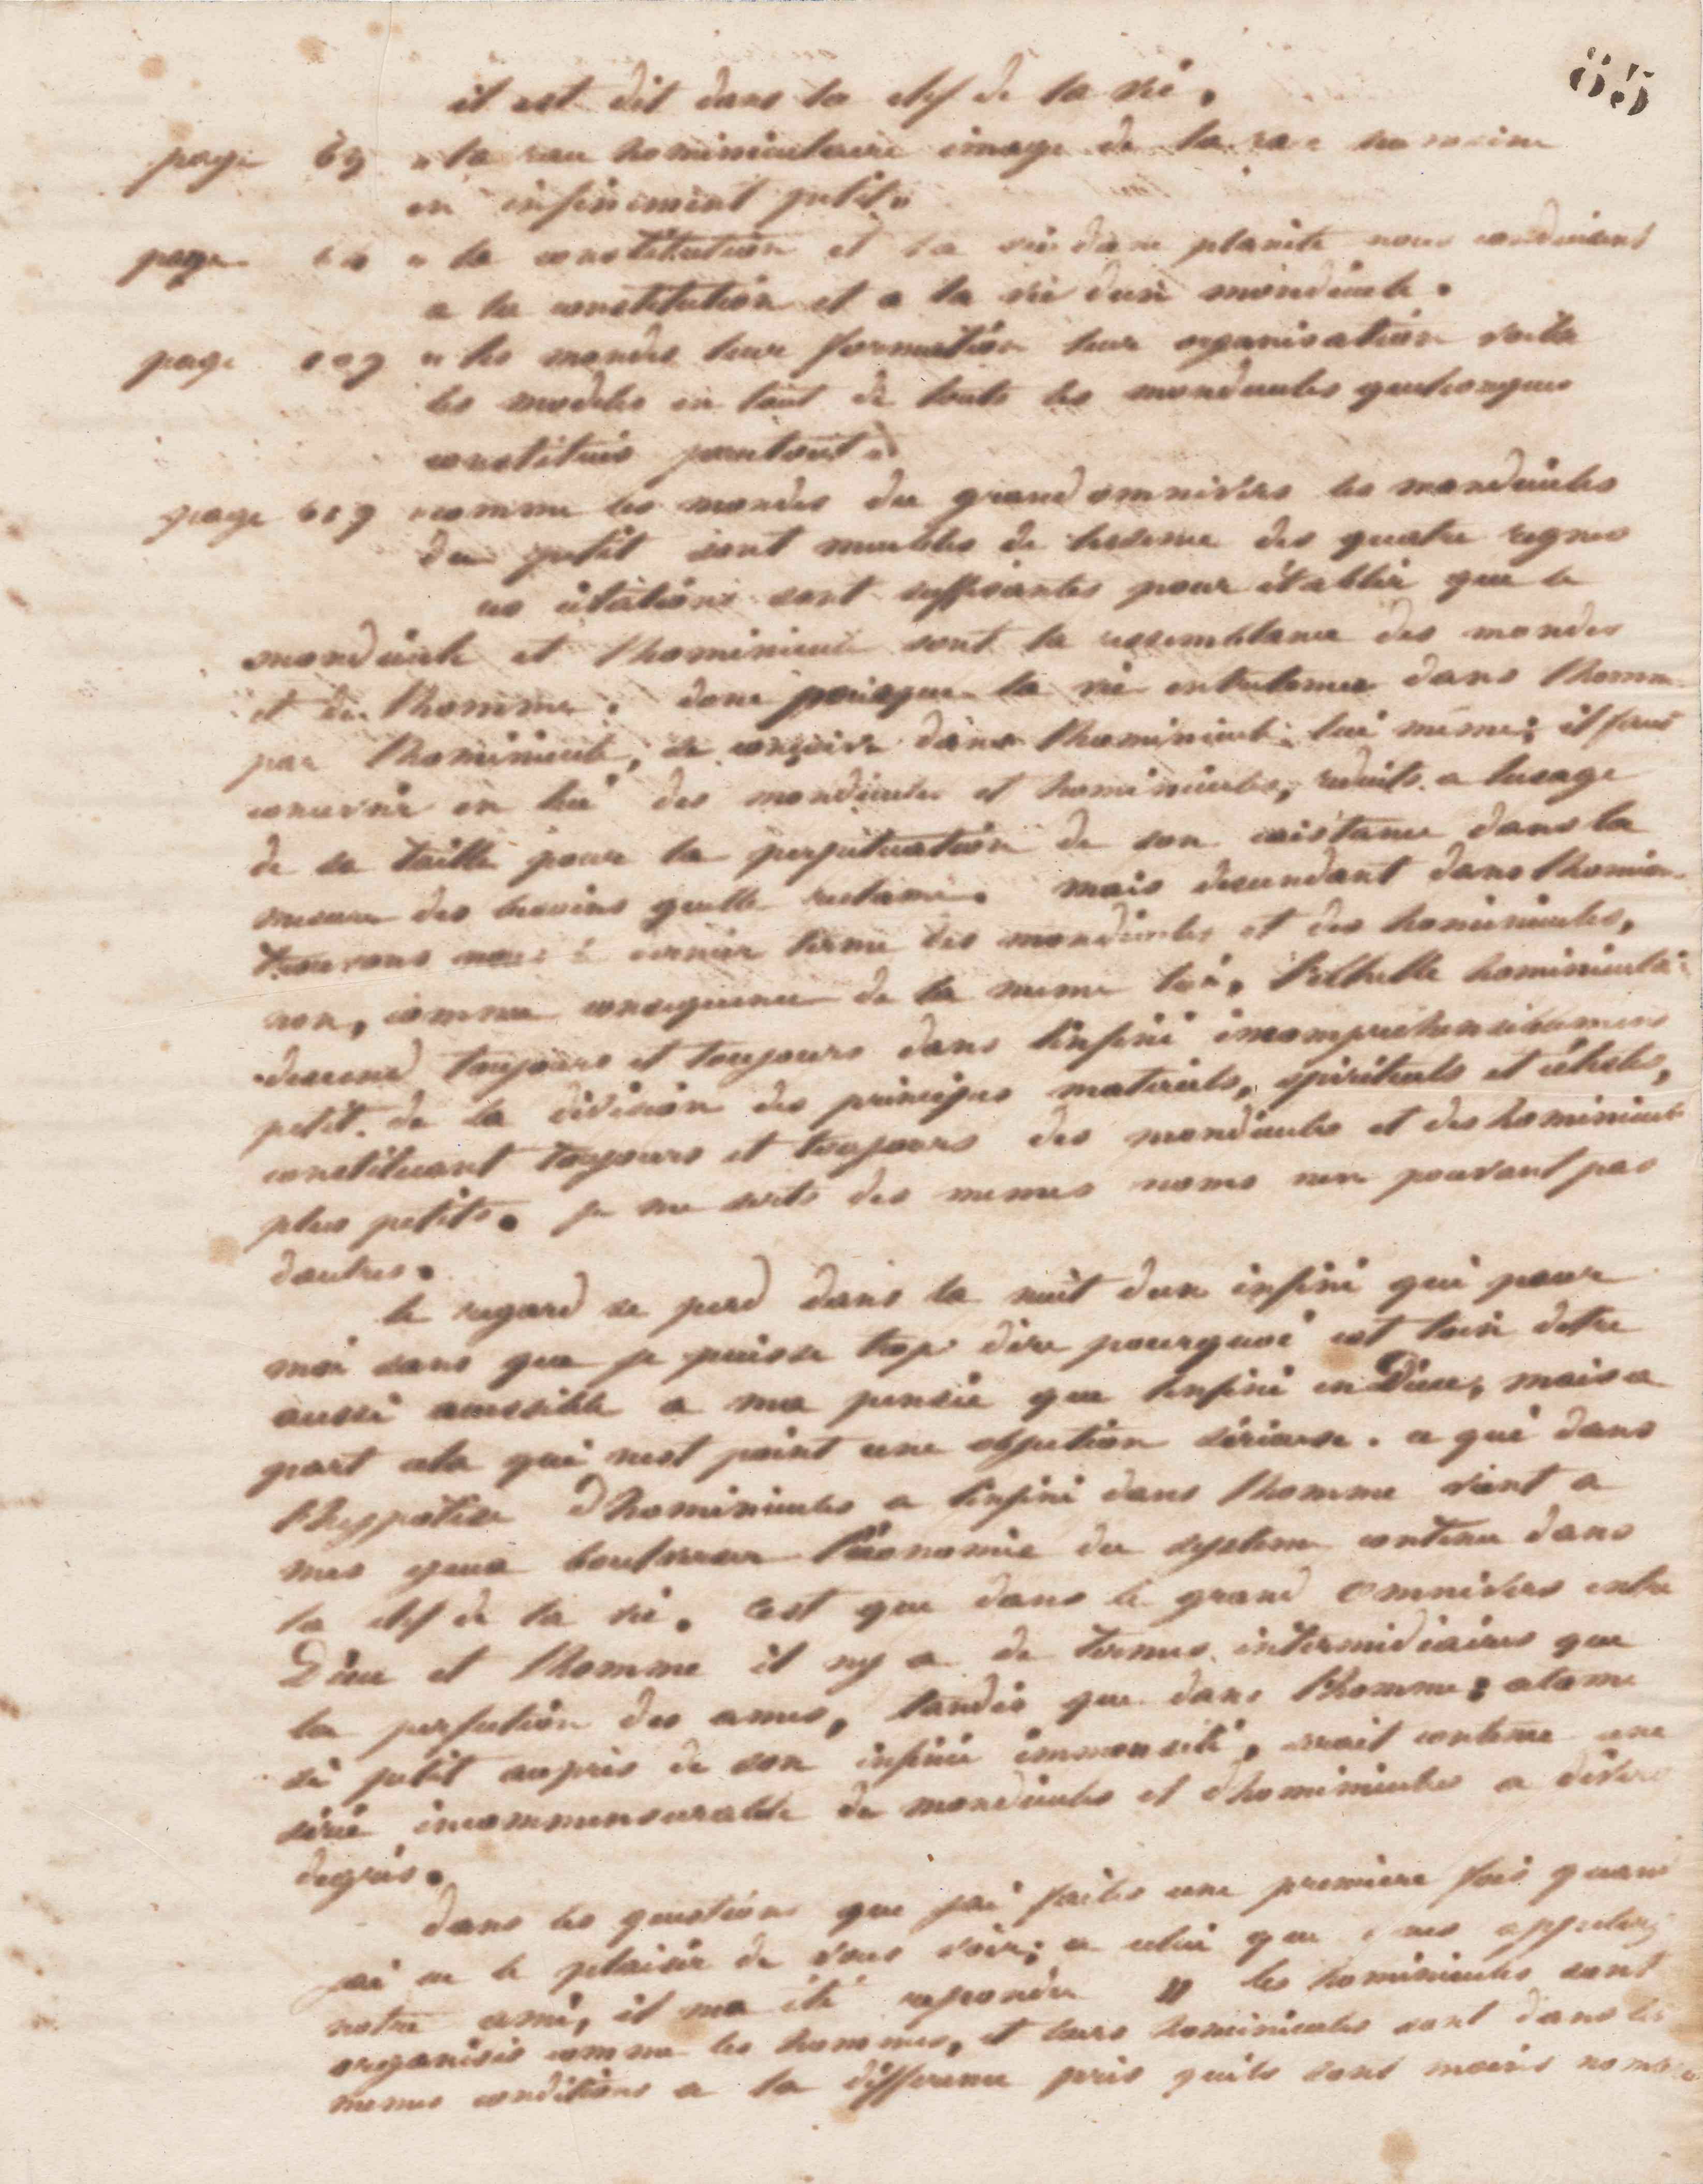 il est dit dans la clef de la vie,
page 69 "la race hominiculaire image de la race humaine
en infiniment petit"
page "la constitution et la vie dune planete nous conduisent
a la constitution et a la vie dun mondicule.
page "les mondes leur formation leur organisation voila
les modeles en tout de touts les mondicules quelconques
constitués partout"
page "comme les mondes du grand omnivers les mondicules
du petit sont meublés de lessence des quatre regnes
ces citations sont suffisantes pour établir que le
mondicule et lhominicule sont la ressemblance des mondes
et de lhomme. donc puisque la vie entretenue dans lhomme
par lhominicule, se conçoive dans lhominicule lui même; il faut
concevoir en lui des mondicules et hominicules, reduits a lusage
de sa taille pour la perpétuation de son existance dans la
mesure des besoins quelle reclame. mais descendant dans lhomin
trouvons nous le dernier terme des mondicules et des hominicules,
non, comme consequence de la meme loi, l'echelle hominiculai
descend toujours et toujours dans linfini incomprehensiblement
petit. de la division des principes materiels, spirituels et célestes,
constituant toujours et toujours des mondicules et des hominicules
plus petits. je me sers des memes noms nen pouvant pas
dautres.
le regard se perd dans la nuit dun infini qui pour
moi sans que je puisse trop dire pourquoi est loin detre
aussi accessible a ma pensée que linfini en Dieu, mais a
part cela qui nest point une objection sérieuse. ce qui dans
lhyppotèse d'hominicules a linfini dans lhomme vient a
mes yeux bouleverser l'économie du systeme contenu dans
la clef de la vie. cest que dans le grand omnivers entre
Dieu et lhomme il ny a de termes intermédiaires que
la perfection des ames, tandis que dans l'homme; atome
si petit auprès de son infinie immensité, serait contenue une
série incommensurable de mondicules et d'hominicules a divers
degrés.
dans les questions que jai faites une premiere fois quand
jai eu le plaisir de vous voir; a celui que vous appelez
notre ami, il ma été repondu " les hominicules sont
organisés comme les hommes, et leurs hominicules sont dans les
memes conditions a la difference près quils sont moins nombre